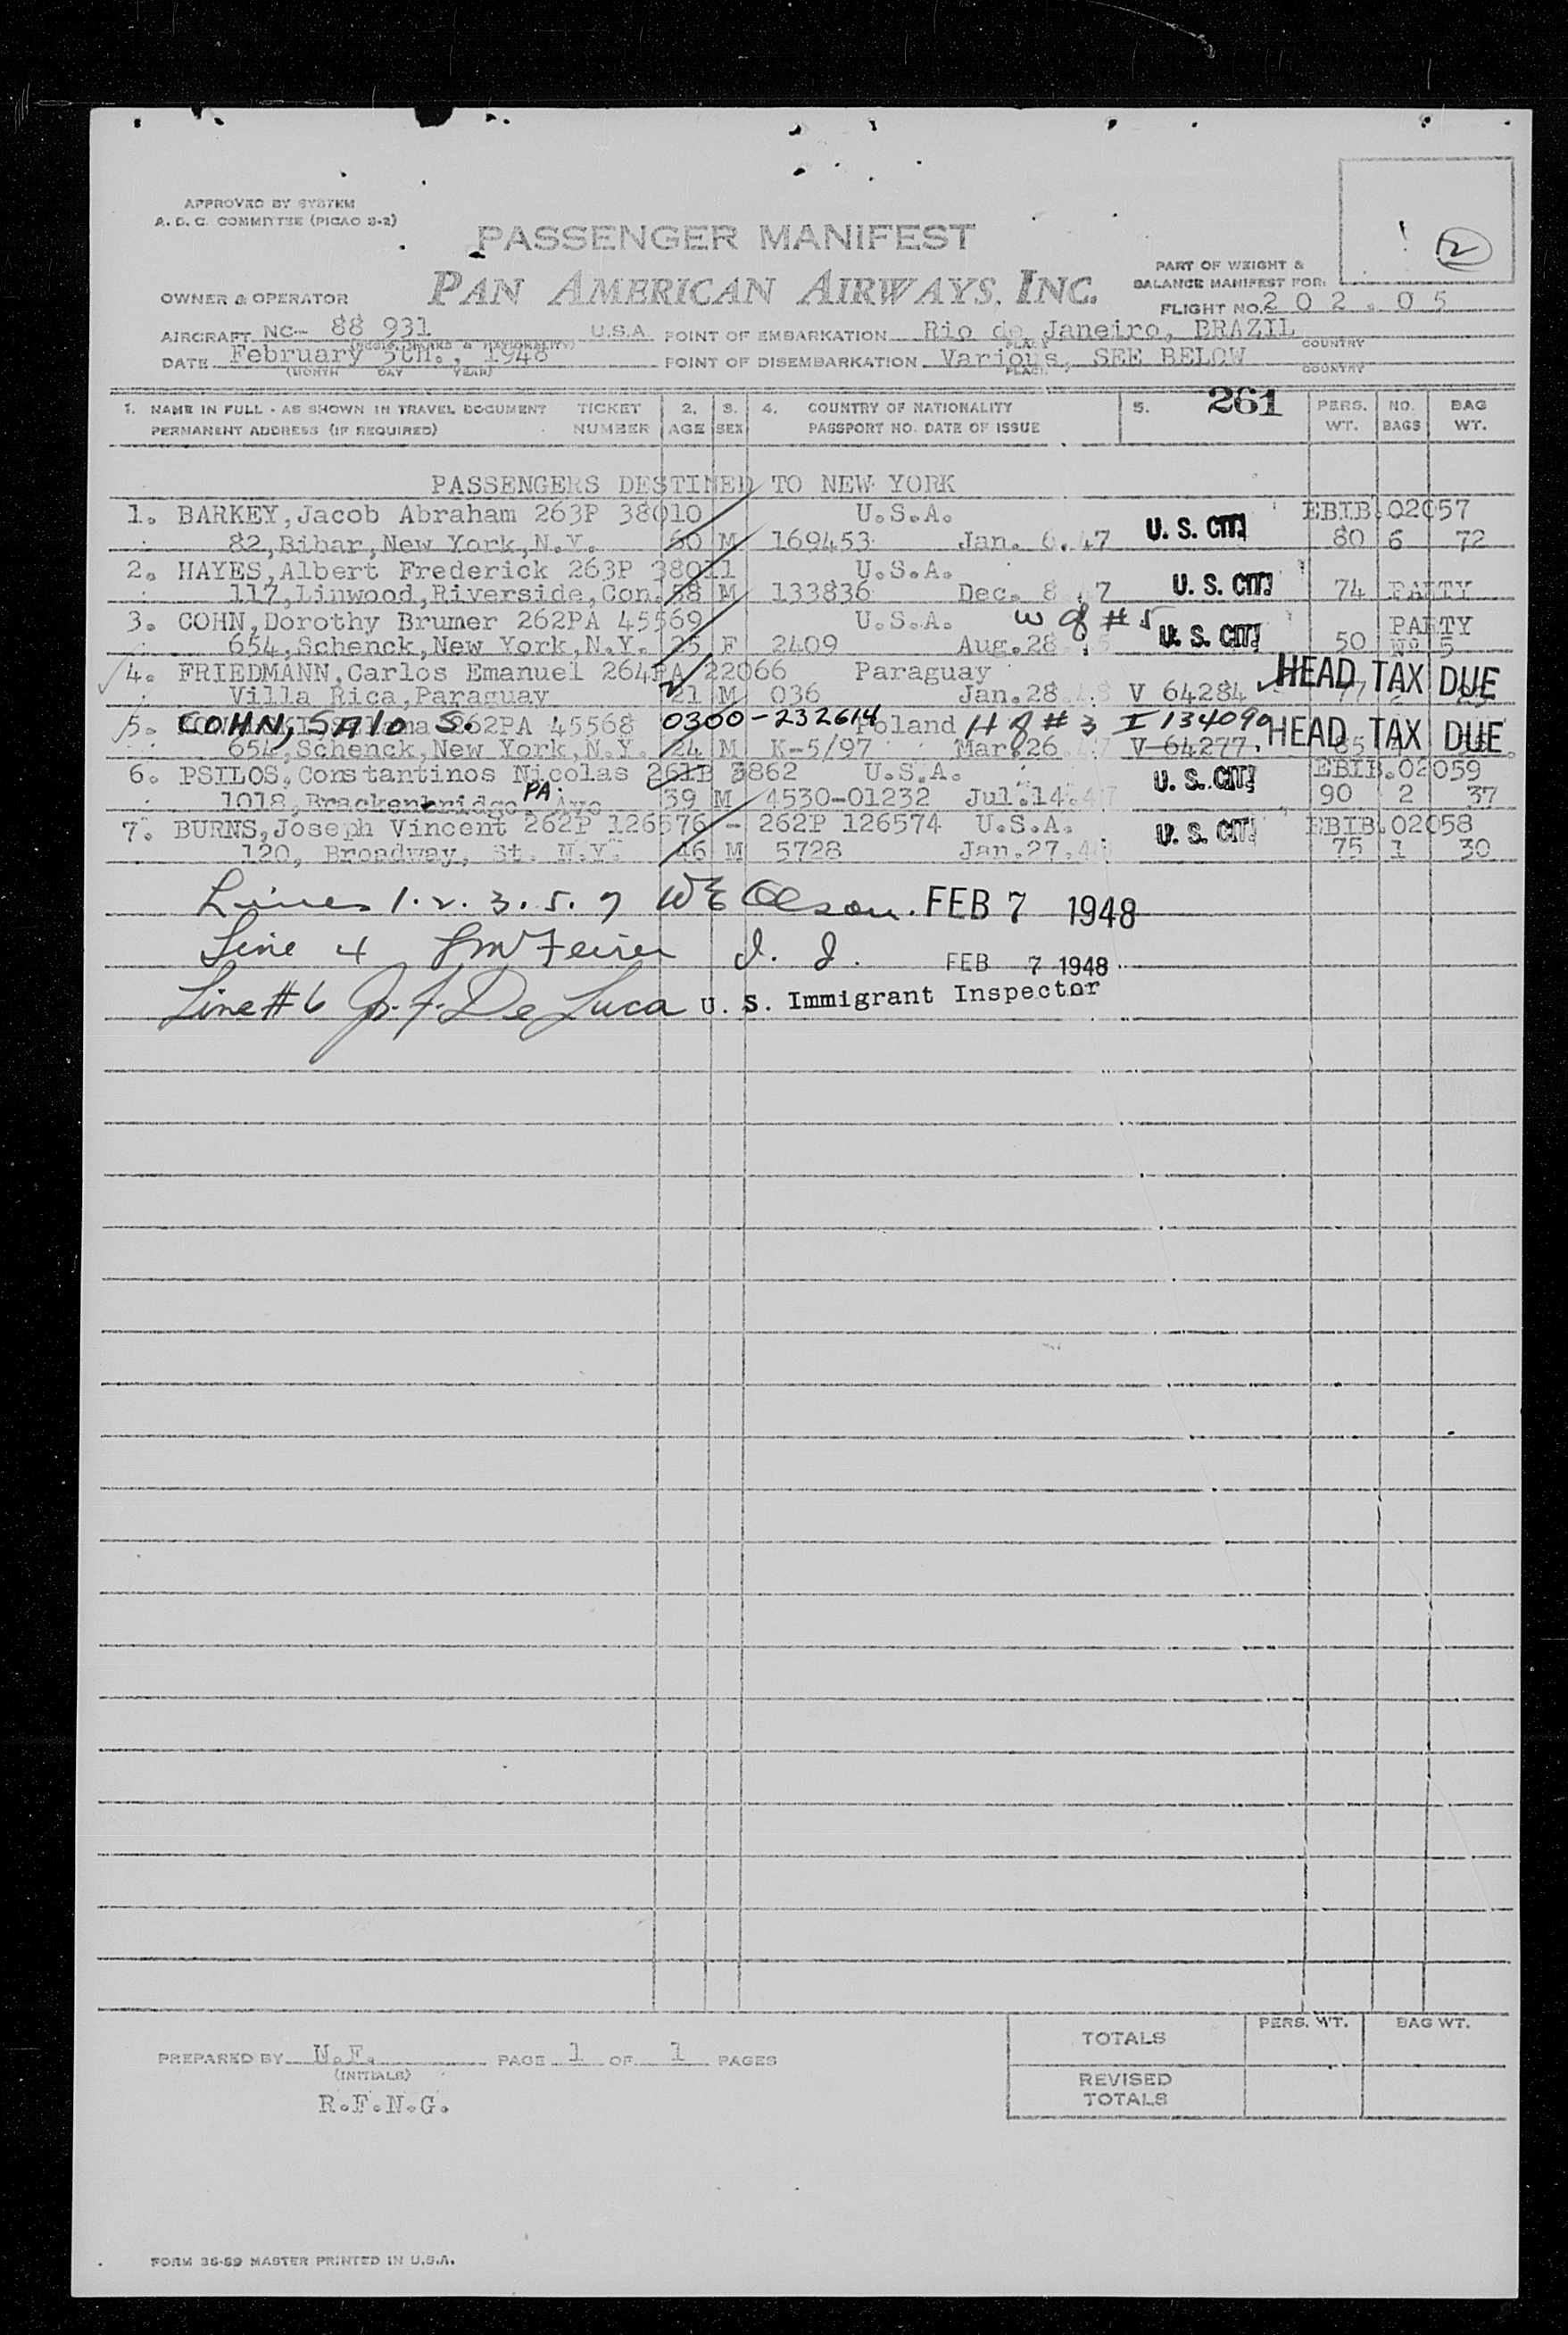 APPROVED BY SYSTEM
A. D. C. COMMITTEE (PICAO S-2)
2
PASSENGER MANIFEST
PAN AMERICAN AIRWAYS, INC.
PART OF WEIGHT &
BALANCE MANIFEST FOR:
OWNER & OPERATOR
FLIGHT NO. 202.05
AIRCRAFT NC- 88 931 U.S.A. POINT OF EMBARKATION Rio de Janeiro, BRAZIL
PLACE COUNTRY
DATE February 5th., 1948 POINT OF DISEMBARKATION Various, SEE BELOW
(MONTH DAY YEAR) PLACE COUNTRY
1. NAME IN FULL - AS SHOWN IN TRAVEL DOCUMENT TICKET 2. 3. 4. COUNTRY OF NATIONALITY 5. 261 PERS. NO. BAG
PERMANENT ADDRESS (IF REQUIRED) NUMBER AGE SEX PASSPORT NO. DATE OF ISSUE WT. BAGS WT.
PASSENGERS DESTINED TO NEW YORK
1. BARKEY,Jacob Abraham 263P 38010 U.S.A. EBIB.02057
82,Bihar,New York,N.Y. 60 M 169453 Jan. 6.47 U. S. CIT. 80 6 72
2. HAYES,Albert Frederick 263P 38011 U.S.A.
117,Linwood,Riverside,Con. 58 M 133836 Dec. 8. 7 U. S. CIT. 74 PARTY
3. COHN,Dorothy Brumer 262PA 45569 U.S.A. W of #5 PARTY
654,Schenck,New York,N.Y. 25 F 2409 Aug.28 U. S. CIT. 50 Nº 5
4. FRIEDMANN,Carlos Emanuel 264PA 22066 Paraguay HEAD TAX DUE
Villa Rica,Paraguay 21 M 036 Jan.28.48 V 64284 77
5. COHN, SALO S. 262PA 45568 0300-232614 Poland H of #3 I 134090 HEAD TAX DUE
654,Schenck,New York,N.Y. 24 M K-5/97 Mar.26. 7 V-64277. 85
6. PSILOS,Constantinos Nicolas 261B 3862 U.S.A. EBIB.02059
1018,Brackenbridge, PA. Ave 39 M 4530-01232 Jul.14.47 U. S. CIT. 90 2 37
7. BURNS,Joseph Vincent 262P 126576 - 262P 126574 U.S.A. EBIB.02058
120, Broadway, St. N.Y. 46 M 5728 Jan.27.4 U. S. CIT. 75 1 30
Lines 1. 2. 3. 5. 7 WE Olson. FEB 7 1948
Line 4 I. I. FEB 7 1948
Line #6 De Luca U. S. Immigrant Inspector
TOTALS PERS. WT. BAG WT.
PREPARED BY N.F. PAGE 1 OF 1 PAGES
(INITIALS)
REVISED
TOTALS
R.F.N.G.
FORM 36-59 MASTER PRINTED IN U.S.A.